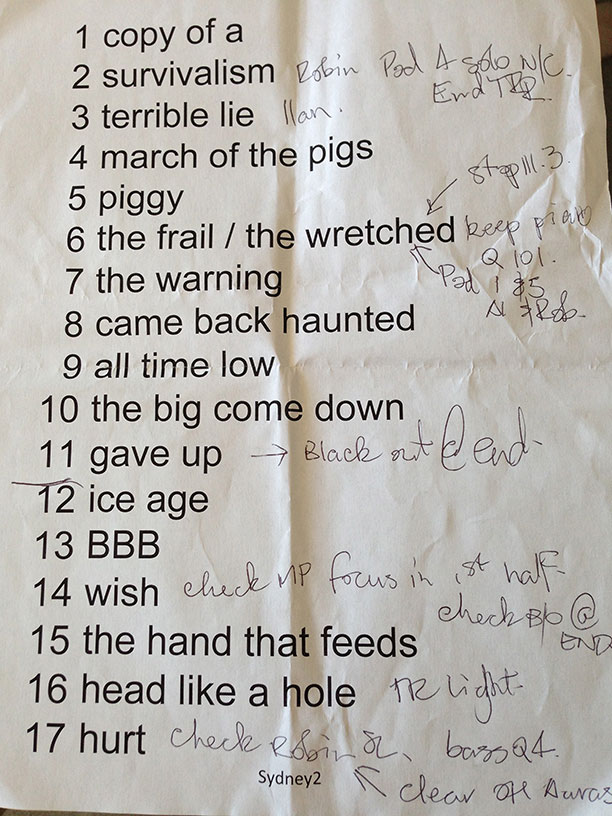 1 copy of a
2 survivalism Robin Pod 4 solo N/C.
End TR
3 terrible lie Ilan.
4 march of the pigs
stop 111.3
5 piggy
6 the frail / the wretched keep piano
Q 101.
7 the warning Pod 1 & 5
Al & Rob.
8 came back haunted
9 all time low
10 the big come down
11 gave up → Black out @ end.
12 ice age
13 BBB
14 wish check MP focus in 1st half
check B/O @
END
15 the hand that feeds
16 head like a hole TR light
17 hurt check Robin SL, bass Q4.
Sydney2 clear off Auras